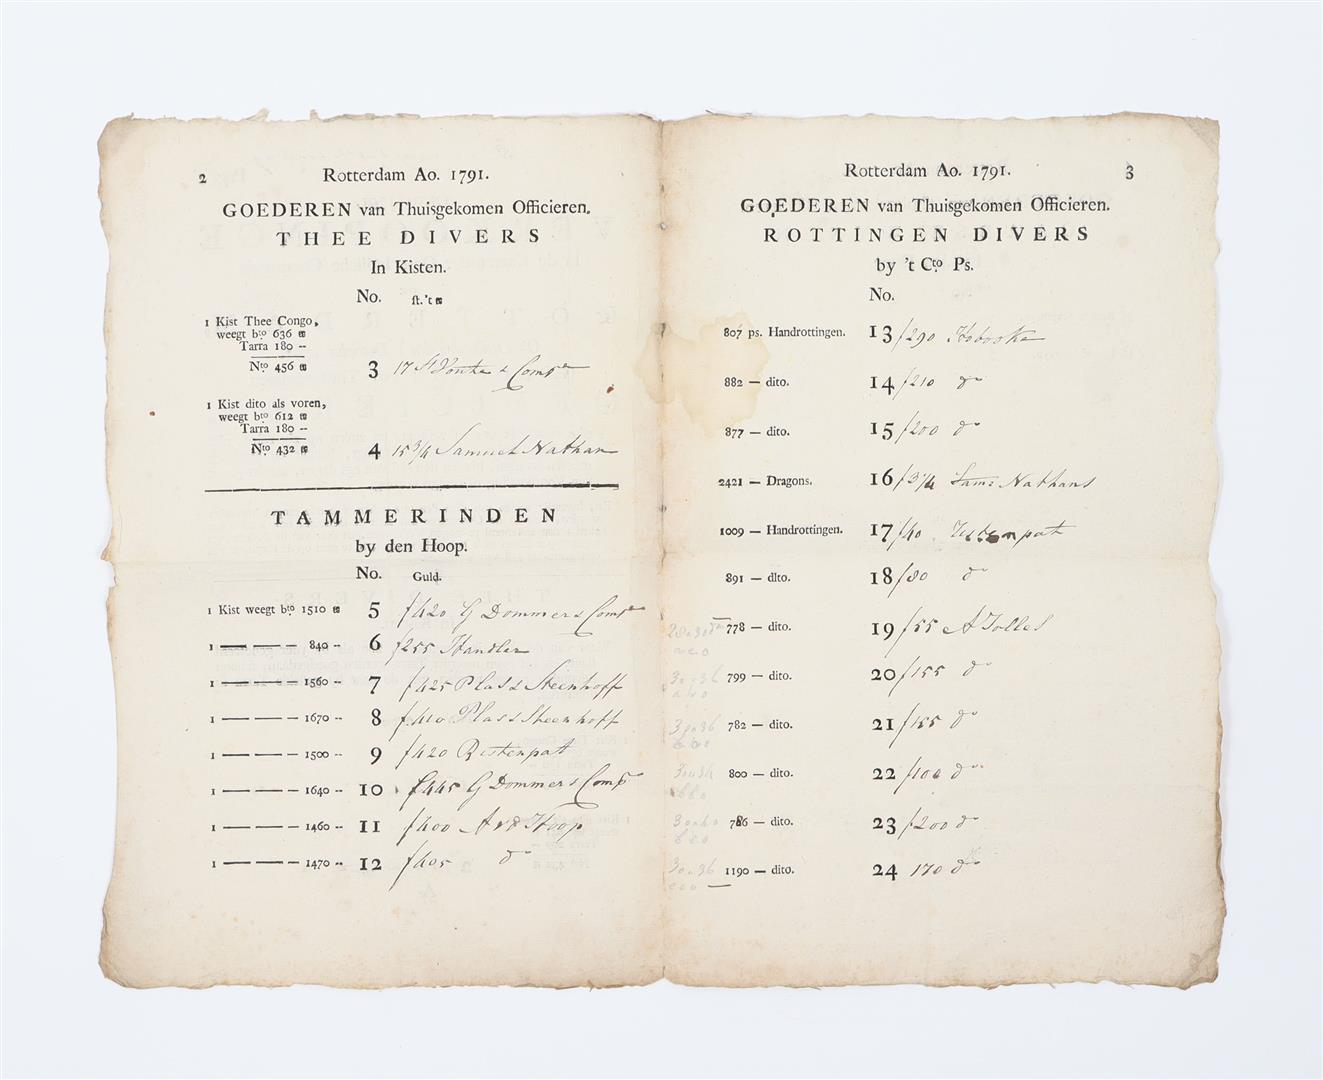 2 Rotterdam Ao. 1791.
GOEDEREN van Thuisgekomen Officieren.
THEE DIVERS
In Kisten.
No. st. 't ℔
1 Kist Thee Congo,
weegt bto 636 ℔
Tarra 180 --
Nto 456 ℔ 3 17 & Compe
1 Kist dito als voren,
weegt bto 612 ℔
Tarra 180 --
Nto 432 ℔ 4 15 3/4 Samuel Nathan
TAMMERINDEN
by den Hoop.
No. Guld.
1 Kist weegt bto 1510 ℔ 5 f420 G Dommer & Compe
1 — — — 840 -- 6 f255 Handler
1 — — — 1560 -- 7 f425 Plas & Steenhoff
1 — — — 1670 -- 8 f410 Plas & Steenhoff
1 — — — 1500 -- 9 f420 Ristenpat
1 — — — 1640 -- 10 f445 G Dommer & Compe
1 — — — 1460 -- 11 f400 A vd Hoop
1 — — — 1470 -- 12 f405 do
Rotterdam Ao. 1791. 3
GOEDEREN van Thuisgekomen Officieren.
ROTTINGEN DIVERS
by 't Cto Ps.
No.
807 ps. Handrottingen. 13 f290
882 — dito. 14 f210 do
877 — dito. 15 f200 do
2421 — Dragons. 16 f3 1/4 Sam: Nathans
1009 — Handrottingen. 17 f40
891 — dito. 18 f80 do
778 — dito. 19 f55 A Tolles
799 — dito. 20 f155 do
782 — dito. 21 f155 do
800 — dito. 22 f100 do
786 — dito. 23 f200 do
1190 — dito. 24 170 do